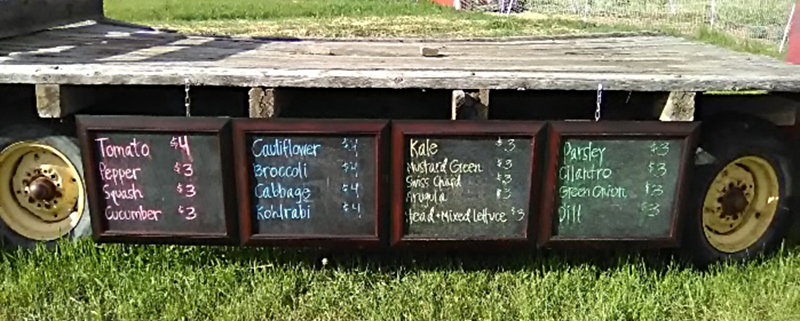 Tomato $4
Pepper $3
Squash $3
Cucumber $3
Cauliflower $4
Broccoli $4
Cabbage $4
Kohlrabi $4
Kale $3
Mustard Green $3
Swiss Chard $3
Arugula $3
Head+Mixed Lettuce $3
Parsley $3
Cilantro $3
Green Onion $3
Dill $3